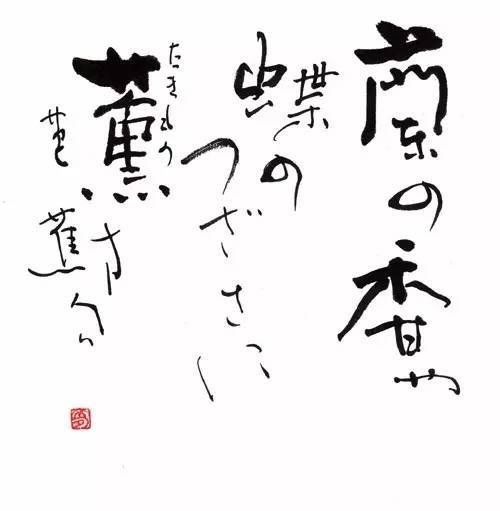 蘭の香や
蝶の
つばさに
たきもの
薫す
芭蕉